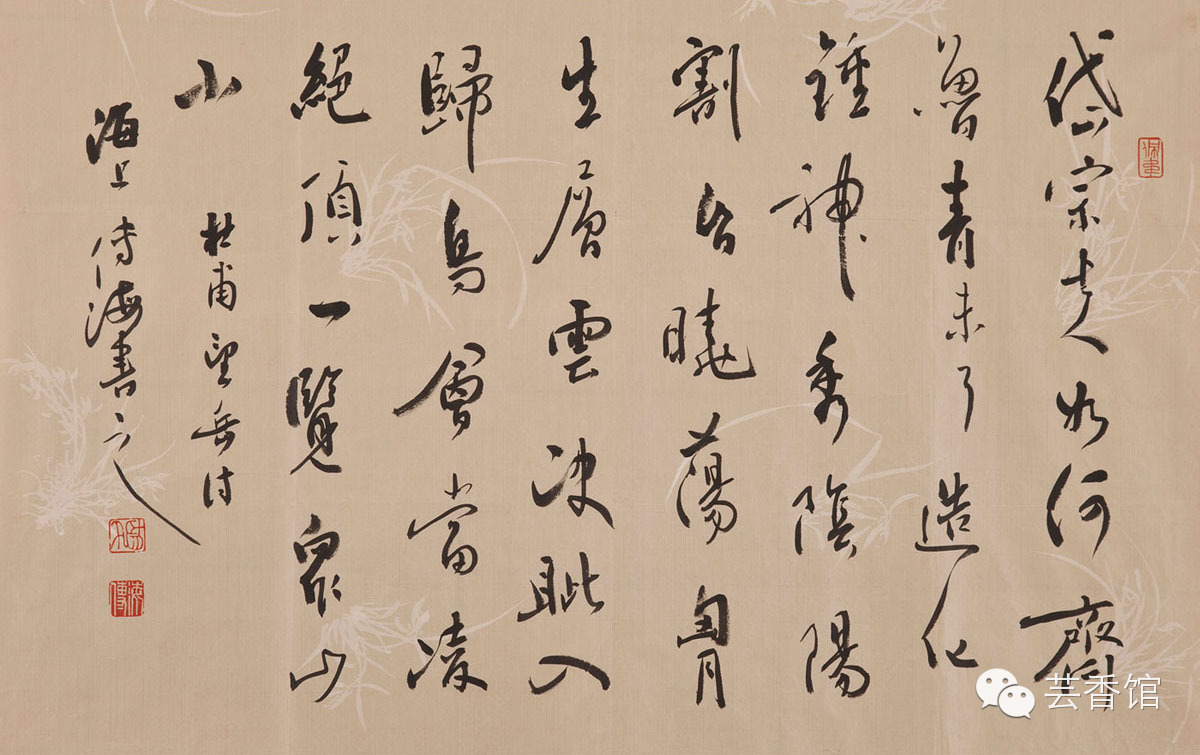 岱宗夫如何齊
魯青未了造化
鍾神秀陰陽
割昏曉蕩胷
生層雲決眦入
歸鳥會當凌
絕頂一覽衆山
小 杜甫望岳詩
海上傅海書之
芸香馆